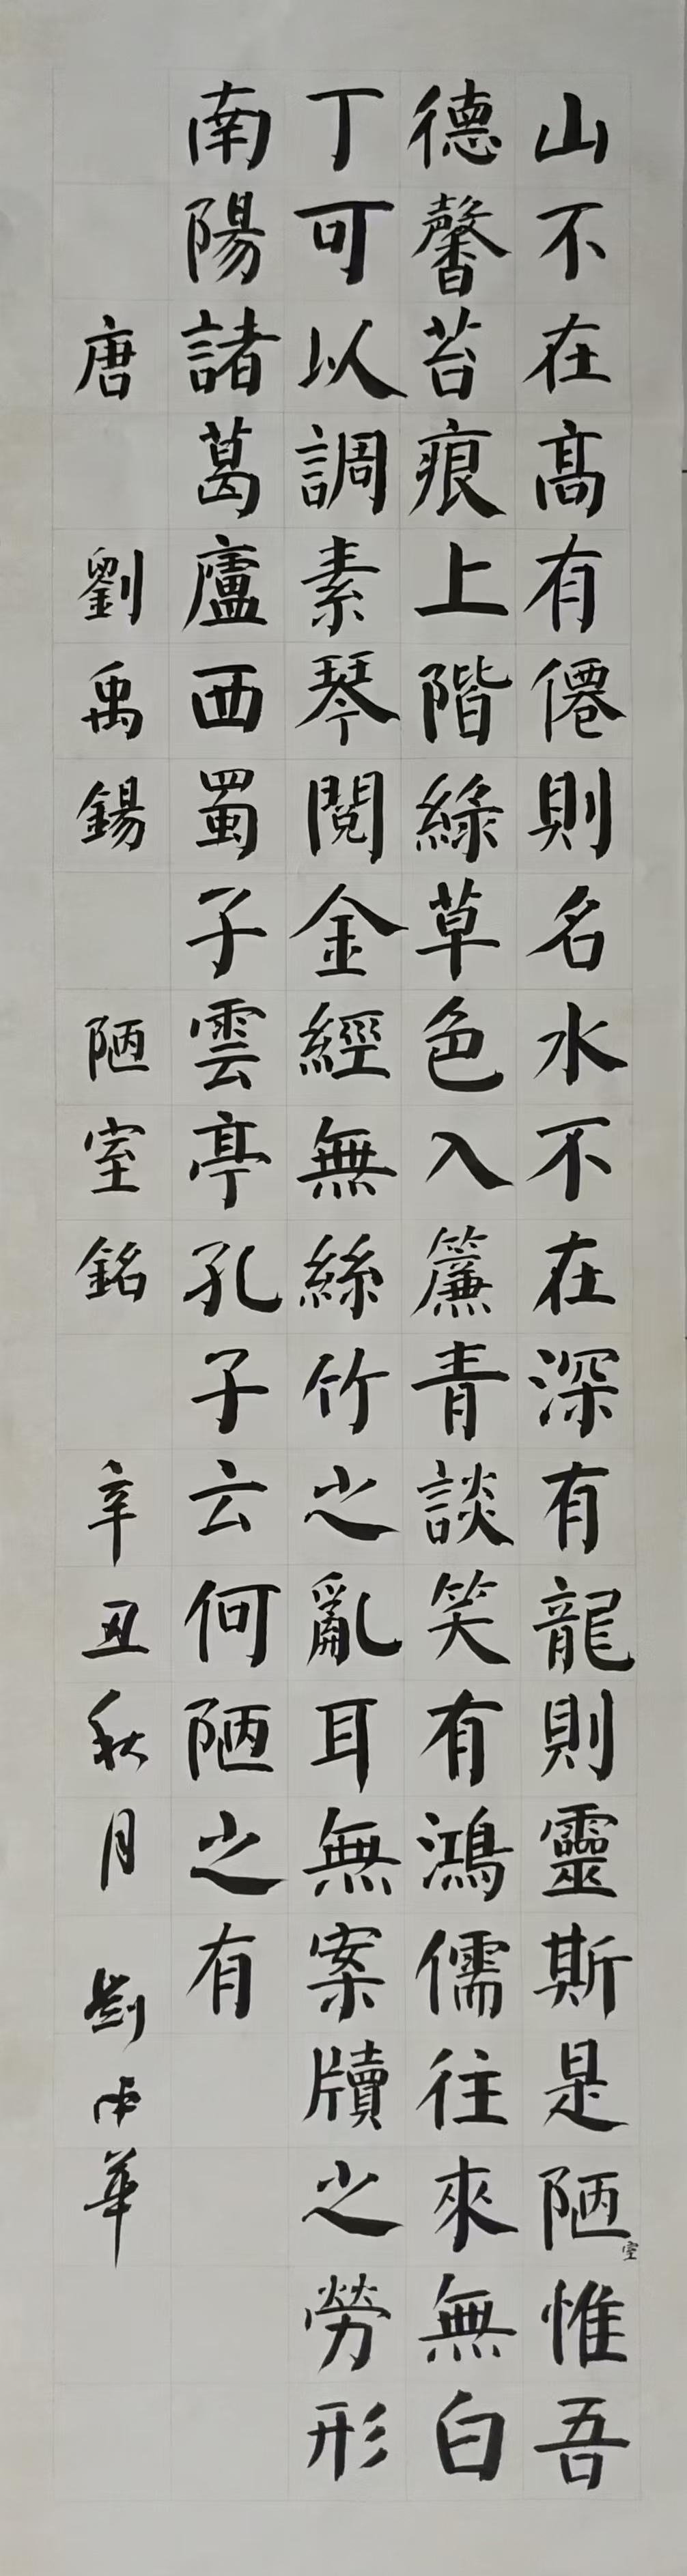 山不在髙有僊則名水不在深有龍則靈斯是陋室惟吾
德馨苔痕上階綠草色入簾青談笑有鴻儒往來無白
丁可以調素琴閱金經無絲竹之亂耳無案牘之勞形
南陽諸葛廬西蜀子雲亭孔子云何陋之有
唐 劉禹錫 陋室銘 辛丑秋月 劉華